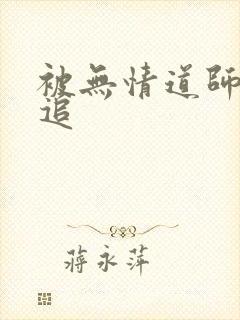 被無情道師
追
蔣永萍